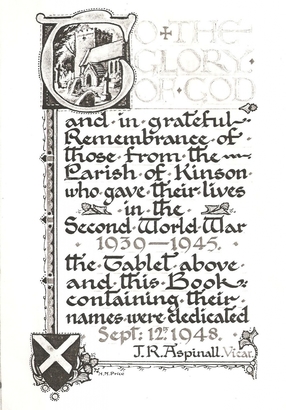 TO THE
GLORY
OF GOD
and in grateful
Remembrance of
those from the
Parish of Kinson
who gave their lives
in the
Second World War
1939—1945.
the Tablet above
and this Book
containing their
names were dedicated
Sept: 12th 1948.
J.R. Aspinall. Vicar.